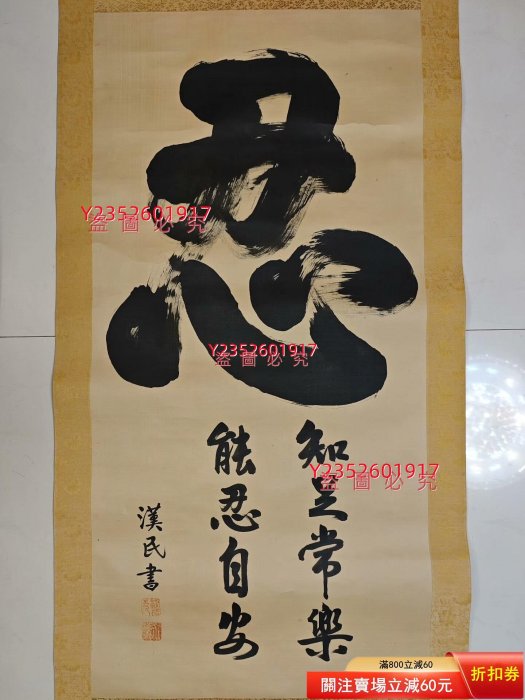 忍
知足常樂
能忍自安
漢民書
Y2352601917
盜圖必究
Y2352601917
盜圖必究
Y2352601917
盜圖必究
滿800立減60
關注賣場立減60元
折扣券